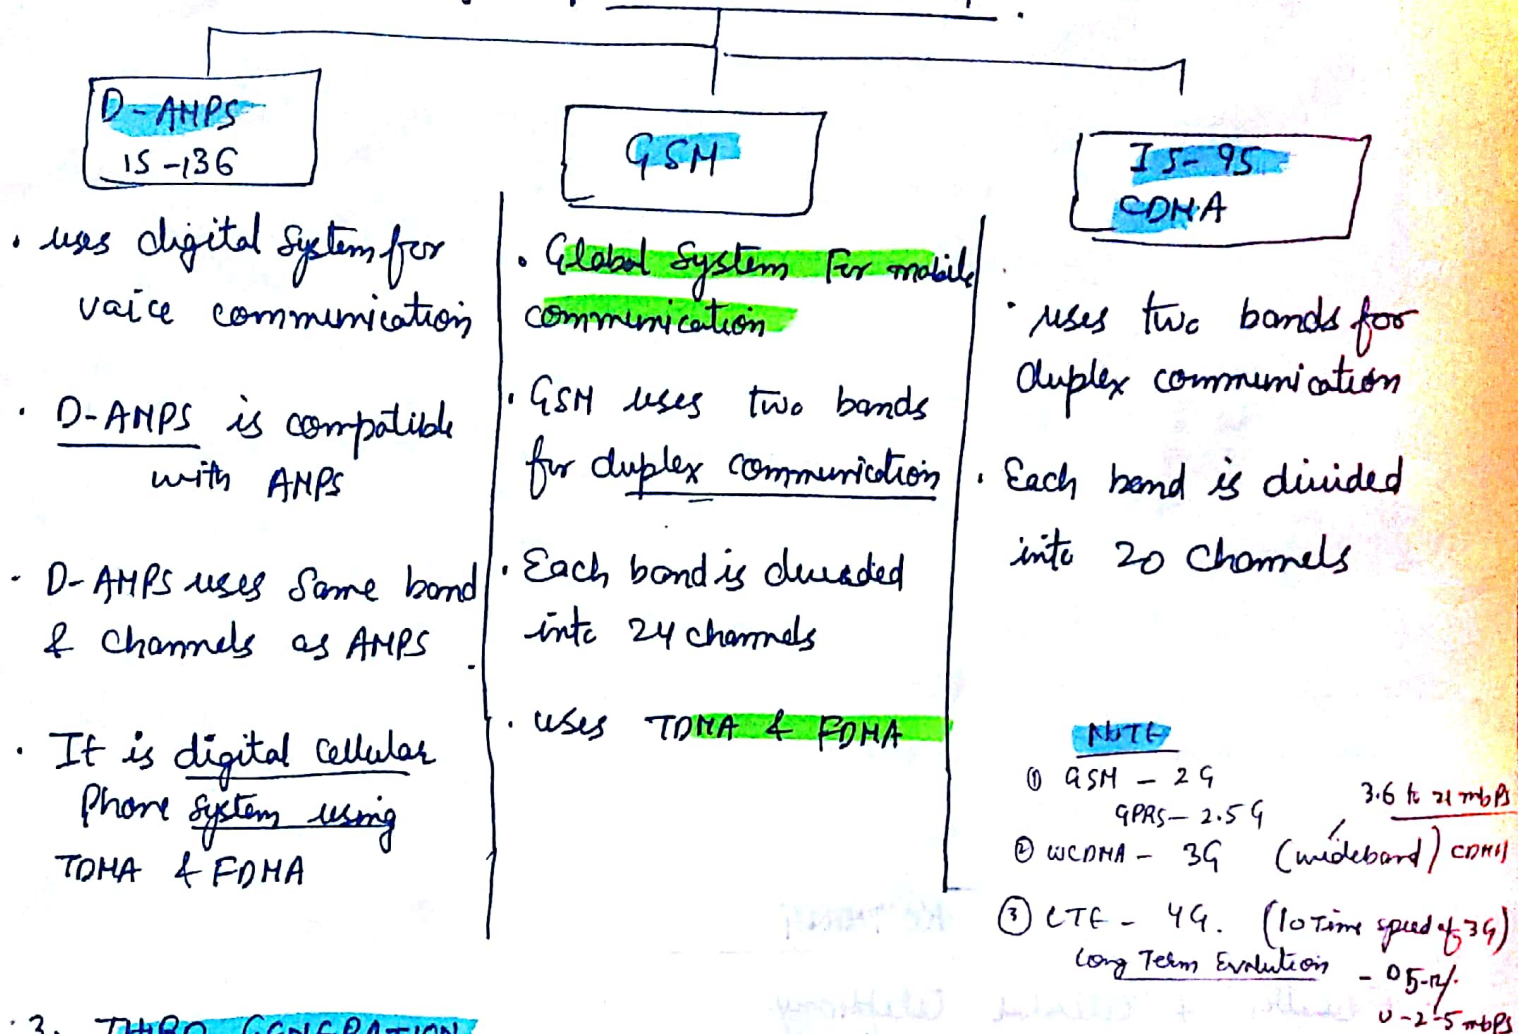 D-AMPS
IS-136
• uses digital System for
vaice communication
• D-AMPS is compatible
with AMPS
- D-AMPS uses Same band
& Channels as AMPS
• It is digital Cellular
Phone System using
TDMA & FDMA
GSM
• Global System For mobile
communication
• GSM uses two bands
for duplex communication
• Each band is
into 24 channels
• uses TDMA & FDMA
IS-95
CDMA
• uses two bands for
duplex communication
• Each band is divided
into 20 Channels
NOTE
① GSM - 2G
GPRS - 2.5G
3.6 to 21 mbps
② WCDMA - 3G (wideband) CDMA
③ LTE - 4G. (10 Time speed of 3G)
Long Term Evolution
3. THIRD GENERATION